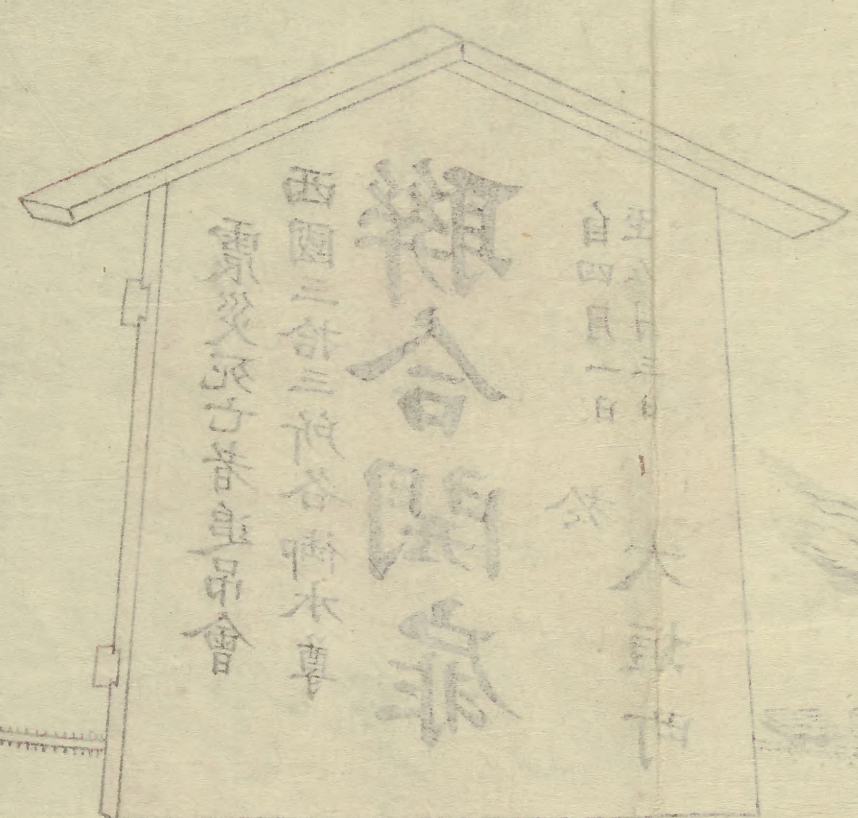 震災死亡者追吊會
西國三拾三所各御本尊
聯合開扉
自四月一日
至仝十三日
於
大垣町